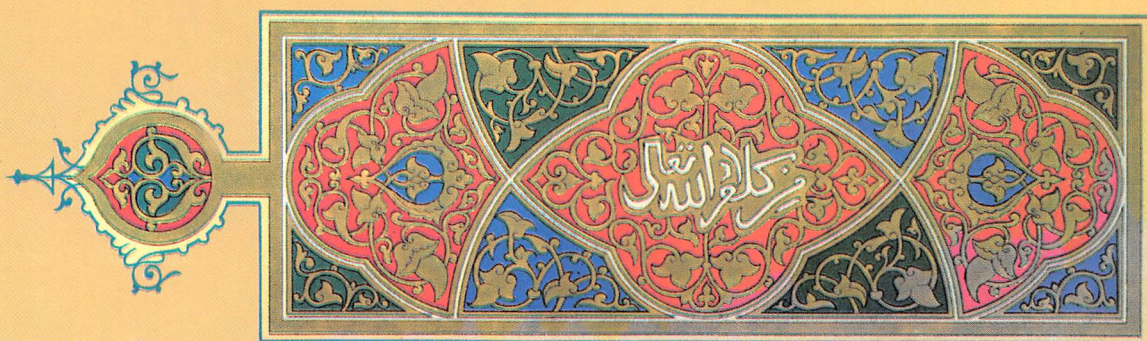 من كلام الله تعالى